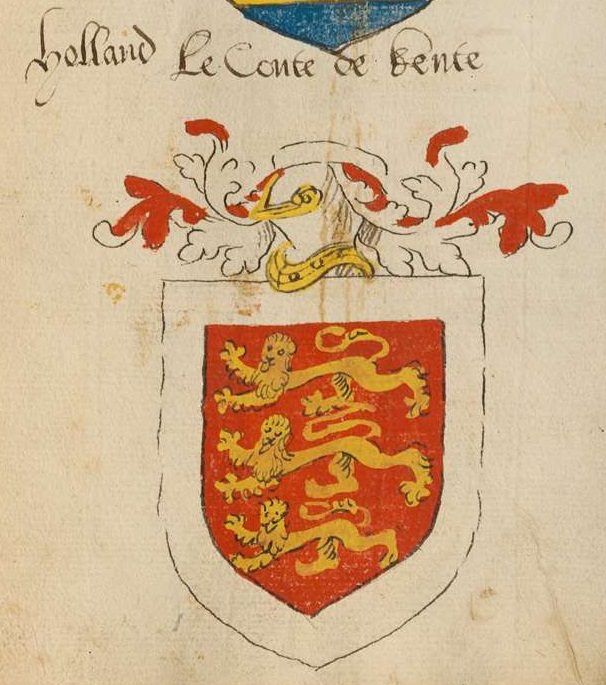 Holland Le Conte de kente